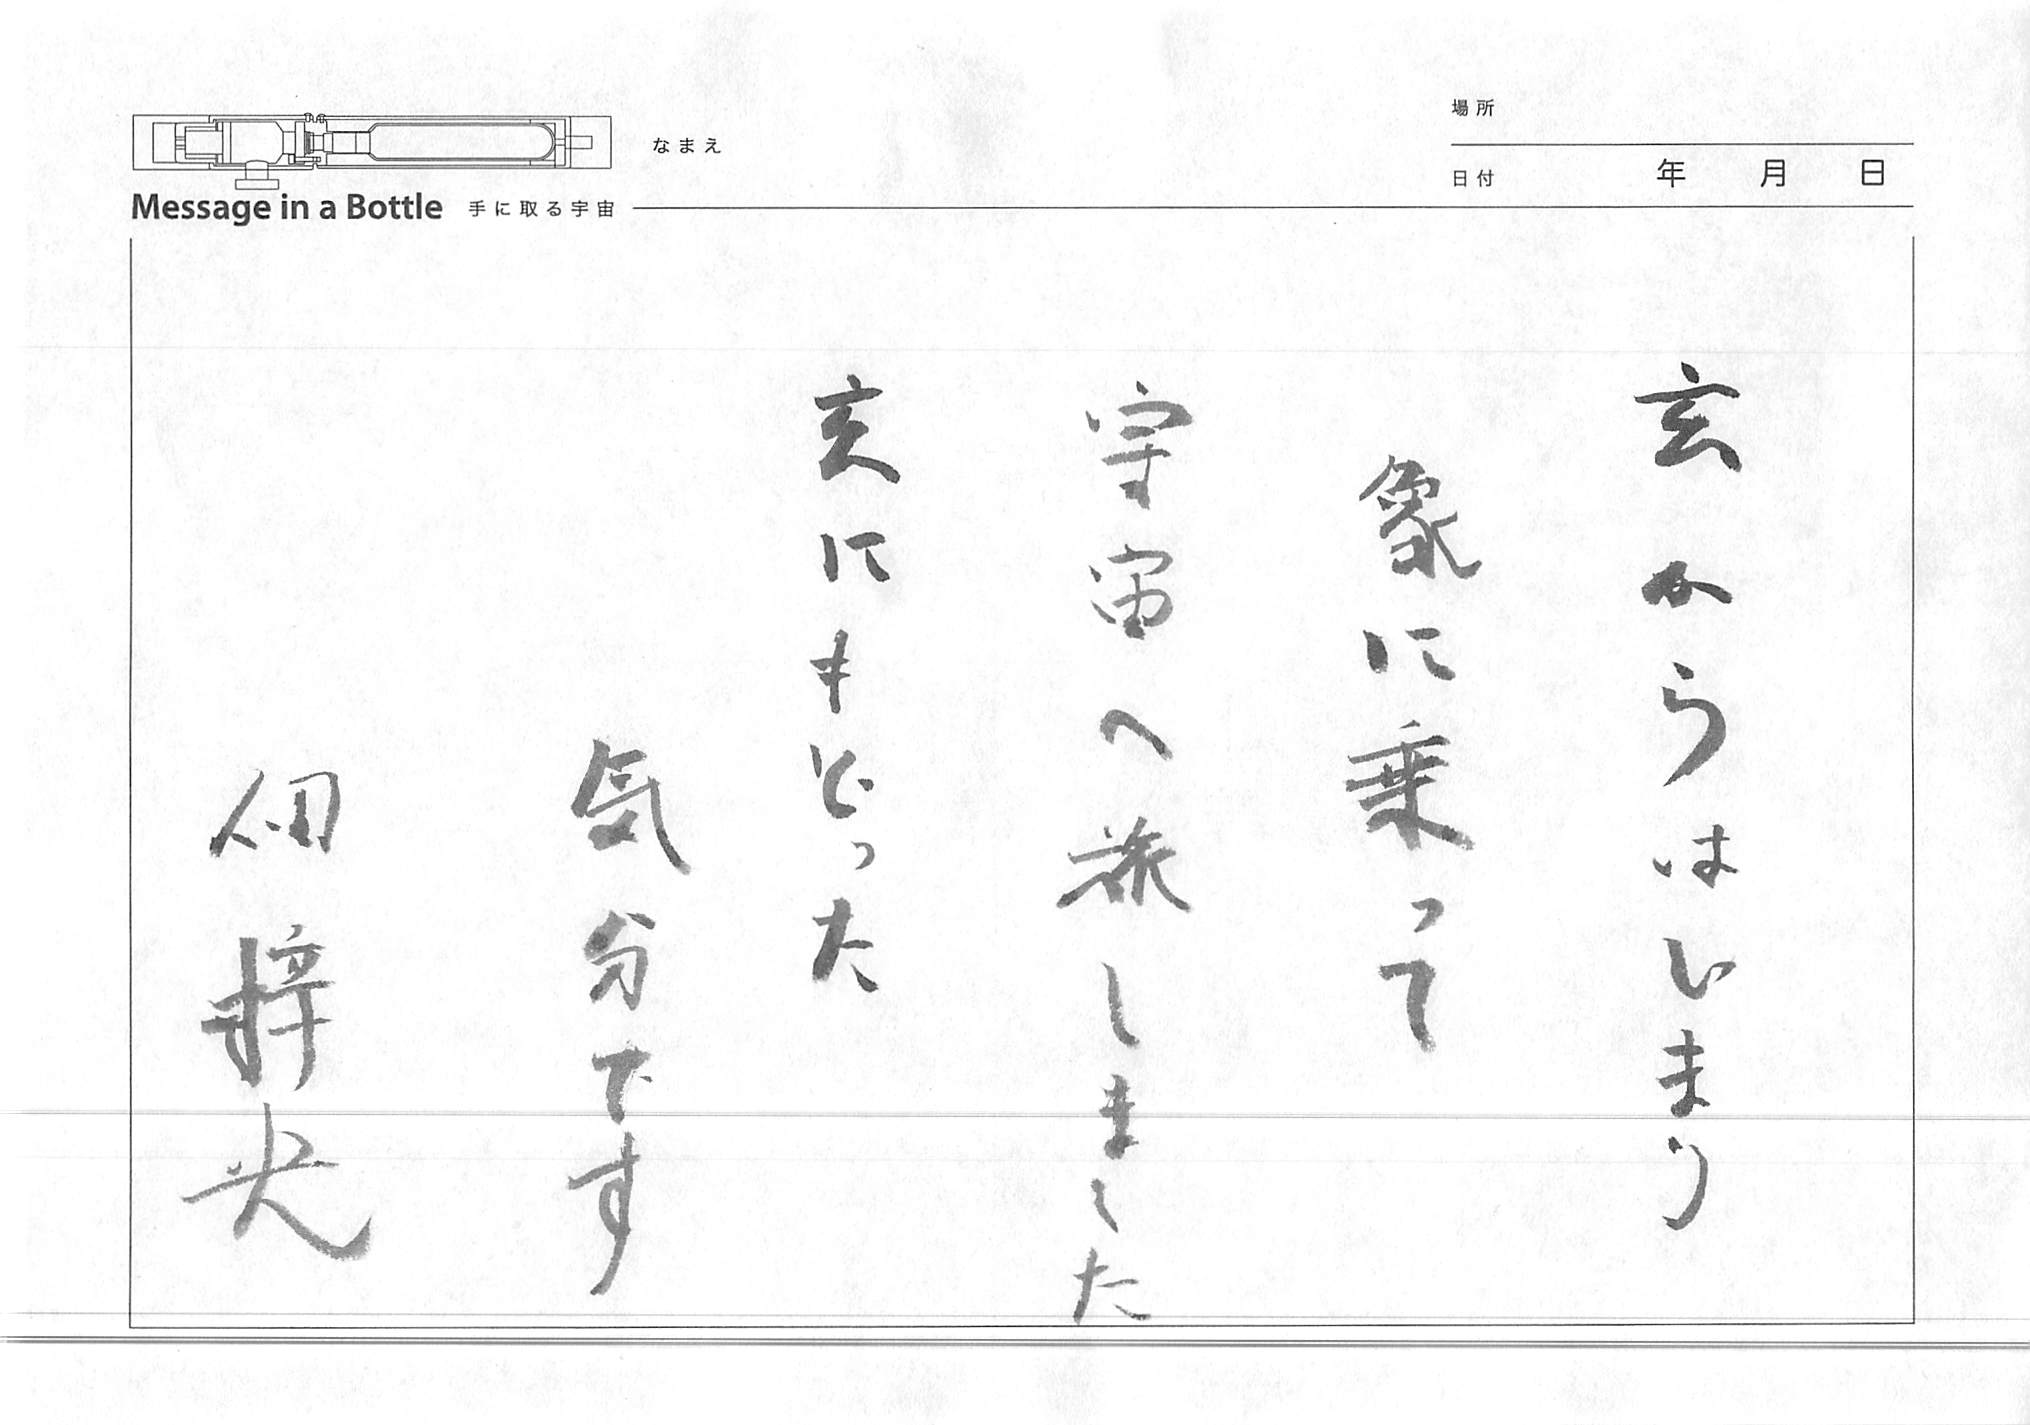 場所
なまえ
日付 年 月 日
Message in a Bottle 手に取る宇宙
玄からはじまり
象に乗って
宇宙へ旅しました
玄にもどった
気分です
佃 梓央